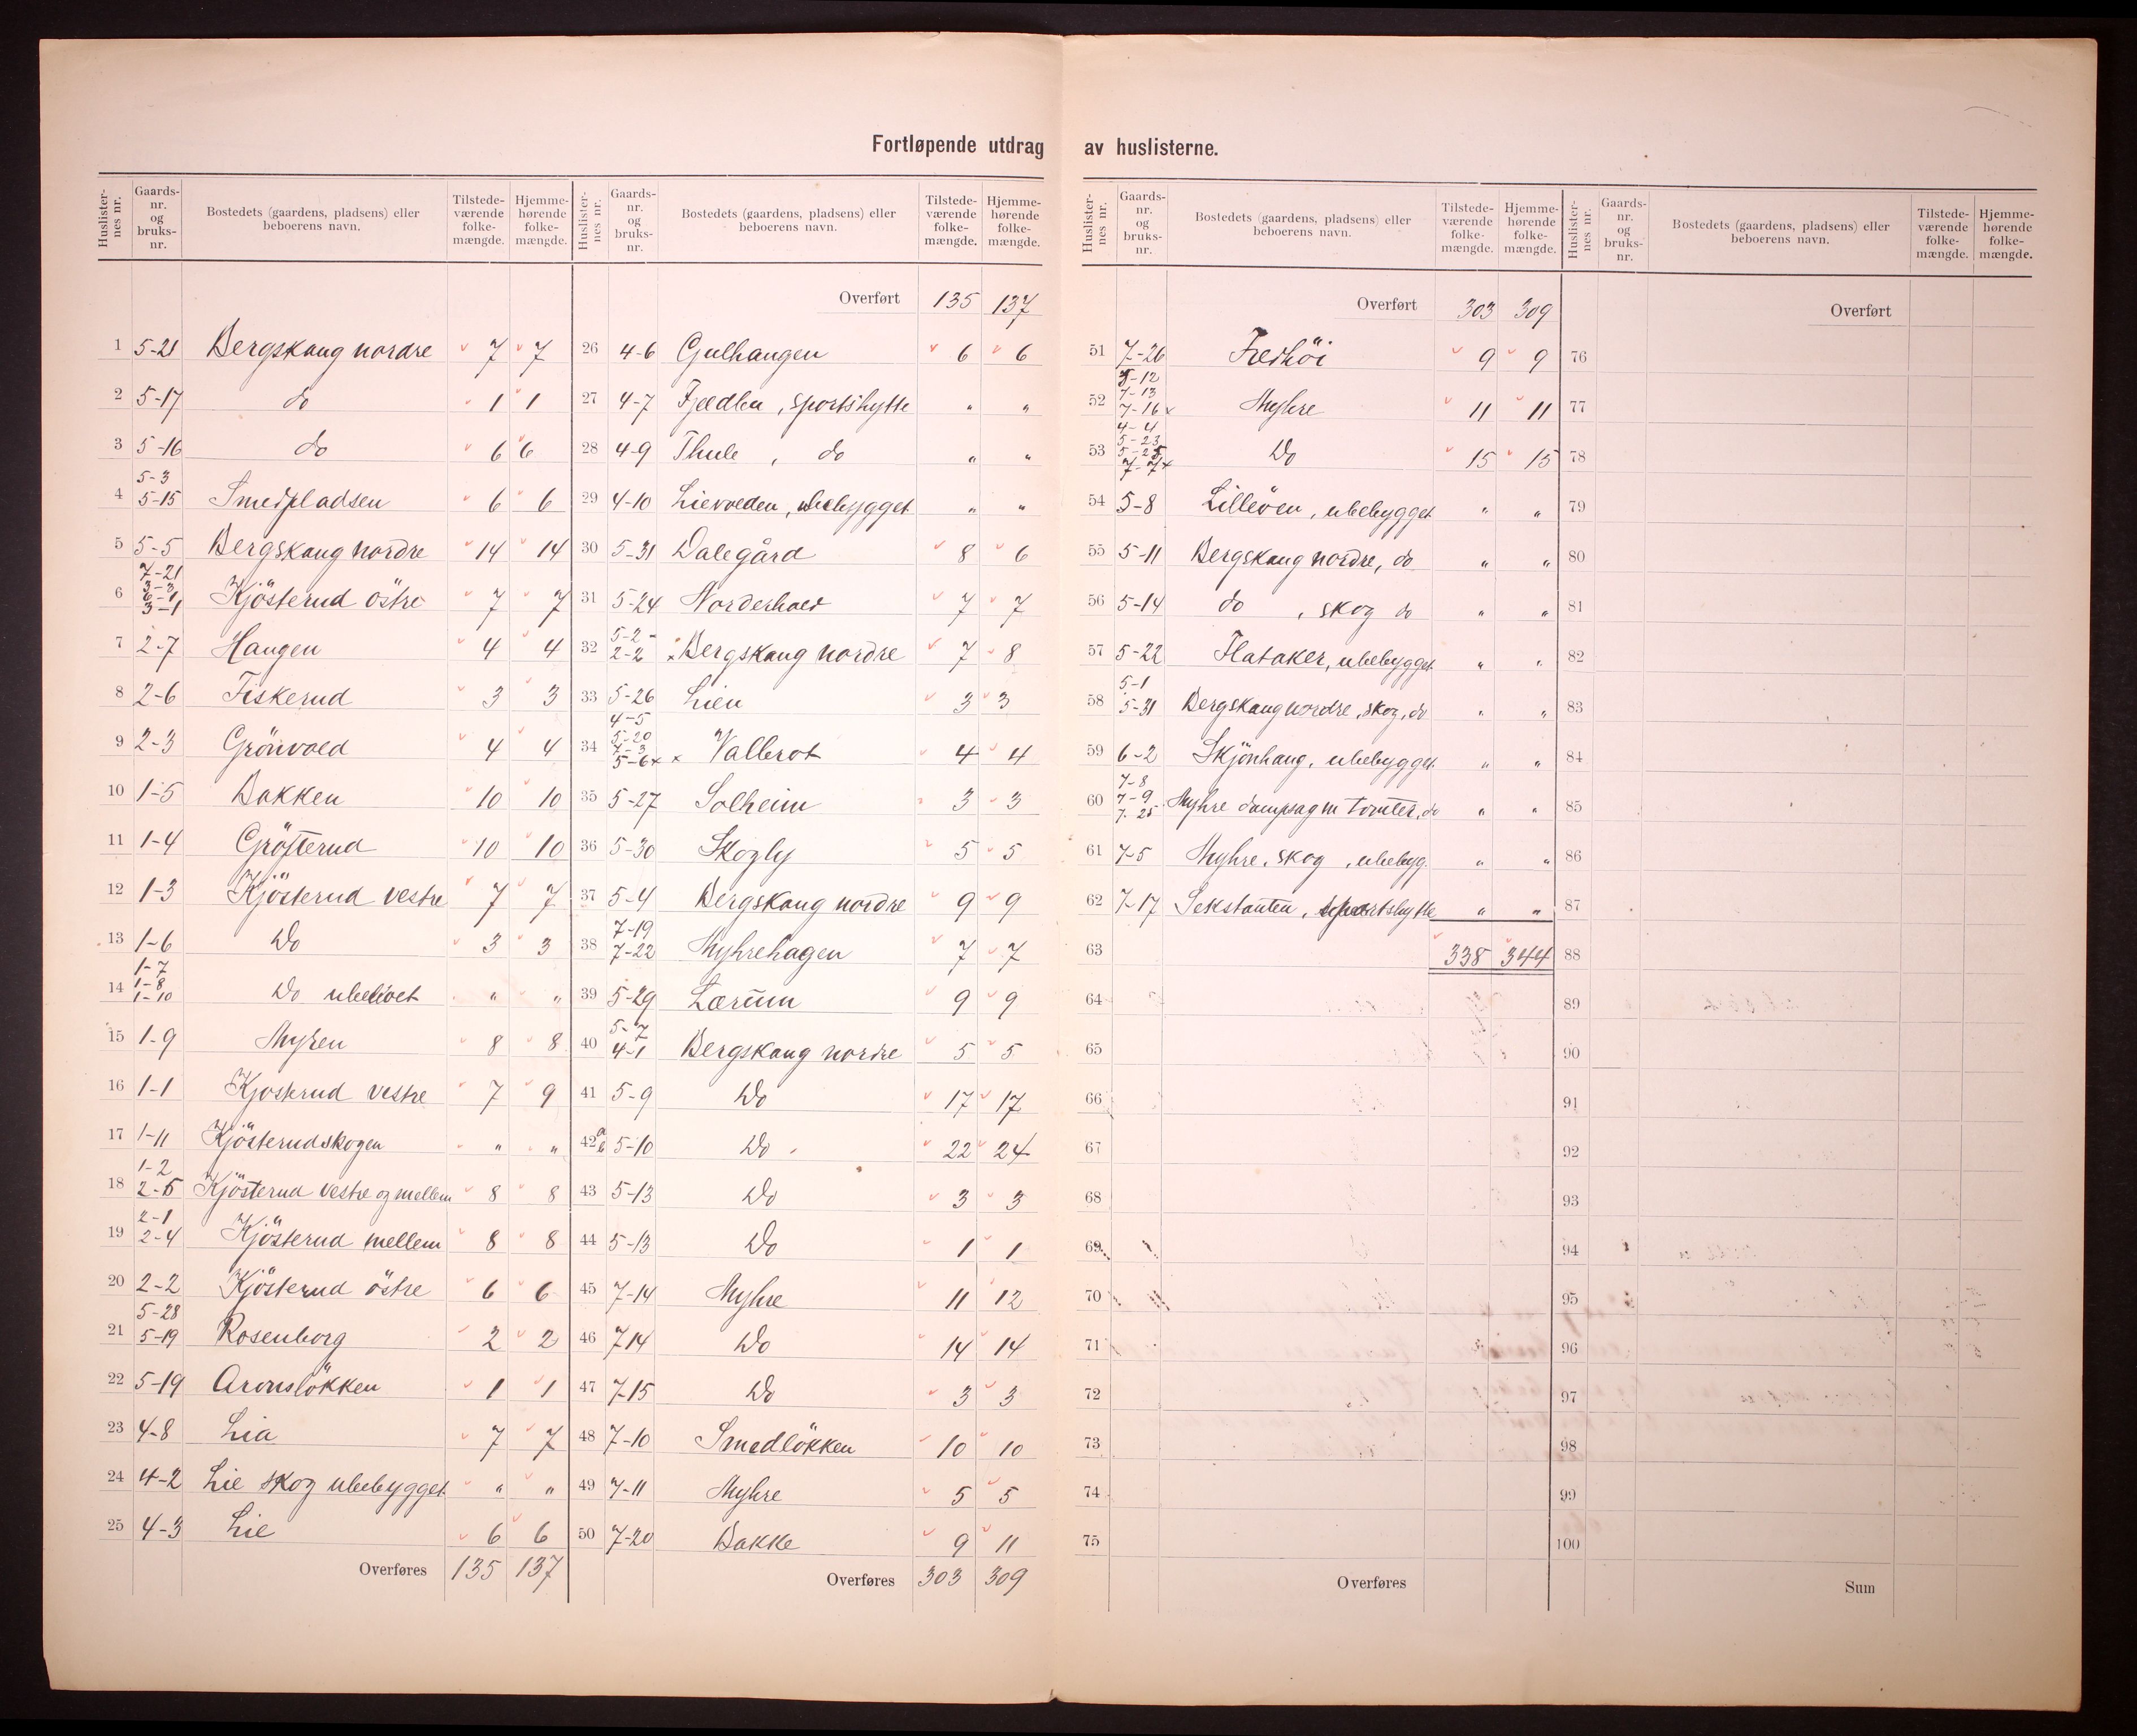 Fortløpende utdrag av huslisterne.
Huslisternes nr. Gaards-nr. og bruks-nr. Bostedets (gaardens, pladsens) eller beboerens navn. Tilstedeværende folkemængde. Hjemmehørende folkemængde.
1 5-21 Bergskaug nordre 7 7
2 5-17 do 1 1
3 5-16 do 6 6
4 5-3 5-15 Smedpladsen 6 6
5 5-5 Bergskaug nordre 14 14
6 7-21 3-3 6-1 3-1 Kjösterud östre 7 7
7 2-7 Haugen 4 4
8 2-6 Fiskerud 3 3
9 2-3 Grönvold 4 4
10 1-5 Bakken 10 10
11 1-4 Grösterud 10 10
12 1-3 Kjösterud vestre 7 7
13 1-6 Do 3 3
14 1-7 1-8 1-10 Do ubeboet " "
15 1-9 Myren 8 8
16 1-1 Kjosterud vestre 7 9
17 1-11 Kjösterudskogen " "
18 1-2 2-5 Kjösterud vestre og mellem 8 8
19 2-1 2-4 Kjösterud mellem 8 8
20 2-2 Kjösterud östre 6 6
21 5-28 5-19 Rosenborg 2 2
22 5-19 Aronslökken 1 1
23 4-8 Lia 7 7
24 4-2 Lie skog ubebygget " "
25 4-3 Lie 6 6
Overføres 135 137
Huslisternes nr. Gaards-nr. og bruks-nr. Bostedets (gaardens, pladsens) eller beboerens navn. Tilstedeværende folkemængde. Hjemmehørende folkemængde.
Overført 135 137
26 4-6 Gulhaugen 6 6
27 4-7 Fjeldleu, sportshytte " "
28 4-9 Thule, do " "
29 4-10 Lievolden, ubebygget " "
30 5-31 Dalegård 8 6
31 5-24 Norderhov 7 7
32 5-2 2-2 x Bergskaug nordre 7 8
33 5-26 Lien 3 3
34 4-5 5-20 7-3 5-6 x x Vallerot 4 4
35 5-27 Solheim 3 3
36 5-30 Skogly 5 5
37 5-4 Bergskaug nordre 9 9
38 7-19 7-22 Myhrehagen 7 7
39 5-29 Lærum 9 9
40 5-7 4-1 Bergskaug nordre 5 5
41 5-9 Do 17 17
42 a b 5-10 Do 22 24
43 5-13 Do 3 3
44 5-13 Do 1 1
45 7-14 Myhre 11 12
46 7 14 Do 14 14
47 7-15 Do 3 3
48 7-10 Smedlökken 10 10
49 7-11 Myhre 5 5
50 7-20 Bakke 9 11
Overføres 303 309
Huslisternes nr. Gaards-nr. og bruks-nr. Bostedets (gaardens, pladsens) eller beboerens navn. Tilstedeværende folkemængde. Hjemmehørende folkemængde.
Overført 303 309
51 7-26 Fredhöi 9 9
52 5-12 7-13 7-16 x Myhre 11 11
53 4-4 5-23 5-25 7-7 x Do 15 15
54 5-8 Lilleöen, ubebygget " "
55 5-11 Bergskaug nordre, do " "
56 5-14 do, skog do " "
57 5-22 Flataker, ubebygget " "
58 5-1 5-31 Bergskaug nordre, skog, do " "
59 6-2 Skjönhaug, ubebygget " "
60 7-8 7-9 7-25 Myhre dampsag m tomter, do " "
61 7-5 Myhre, skog, ubebyg. " "
62 7-17 Sekstanten, sportshytte " "
63 338 344
64
65
66
67
68
69
70
71
72
73
74
75
Overføres
Huslisternes nr. Gaards-nr. og bruks-nr. Bostedets (gaardens, pladsens) eller beboerens navn. Tilstedeværende folkemængde. Hjemmehørende folkemængde.
Overført
76
77
78
79
80
81
82
83
84
85
86
87
88
89
90
91
92
93
94
95
96
97
98
99
100
Sum